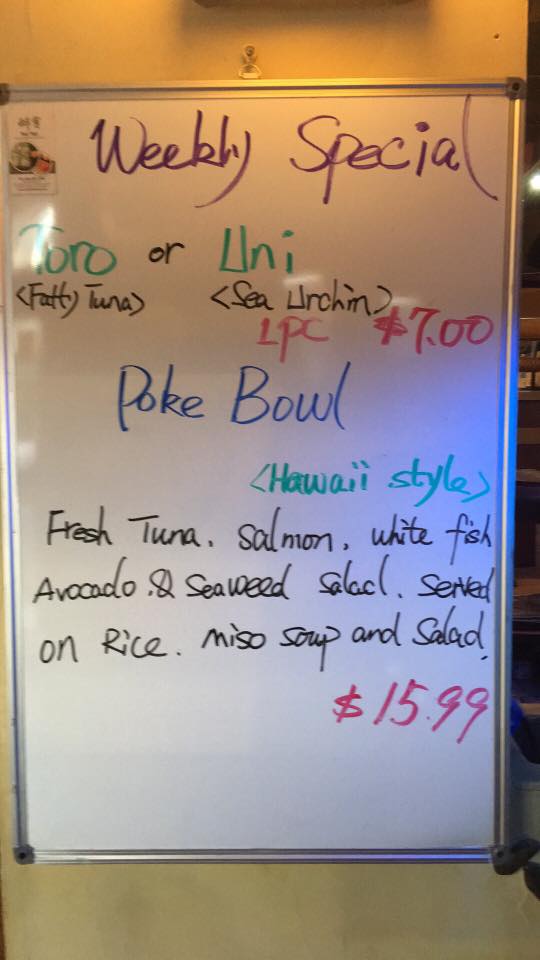 Weekly Special
Toro or Uni
<Fatty Tuna> <Sea Urchin>
1PC $7.00
Poke Bowl
<Hawaii style>
Fresh Tuna. Salmon. white fish
Avocado. & Seaweed Salad. Served
on Rice. miso soup and Salad.
$15.99